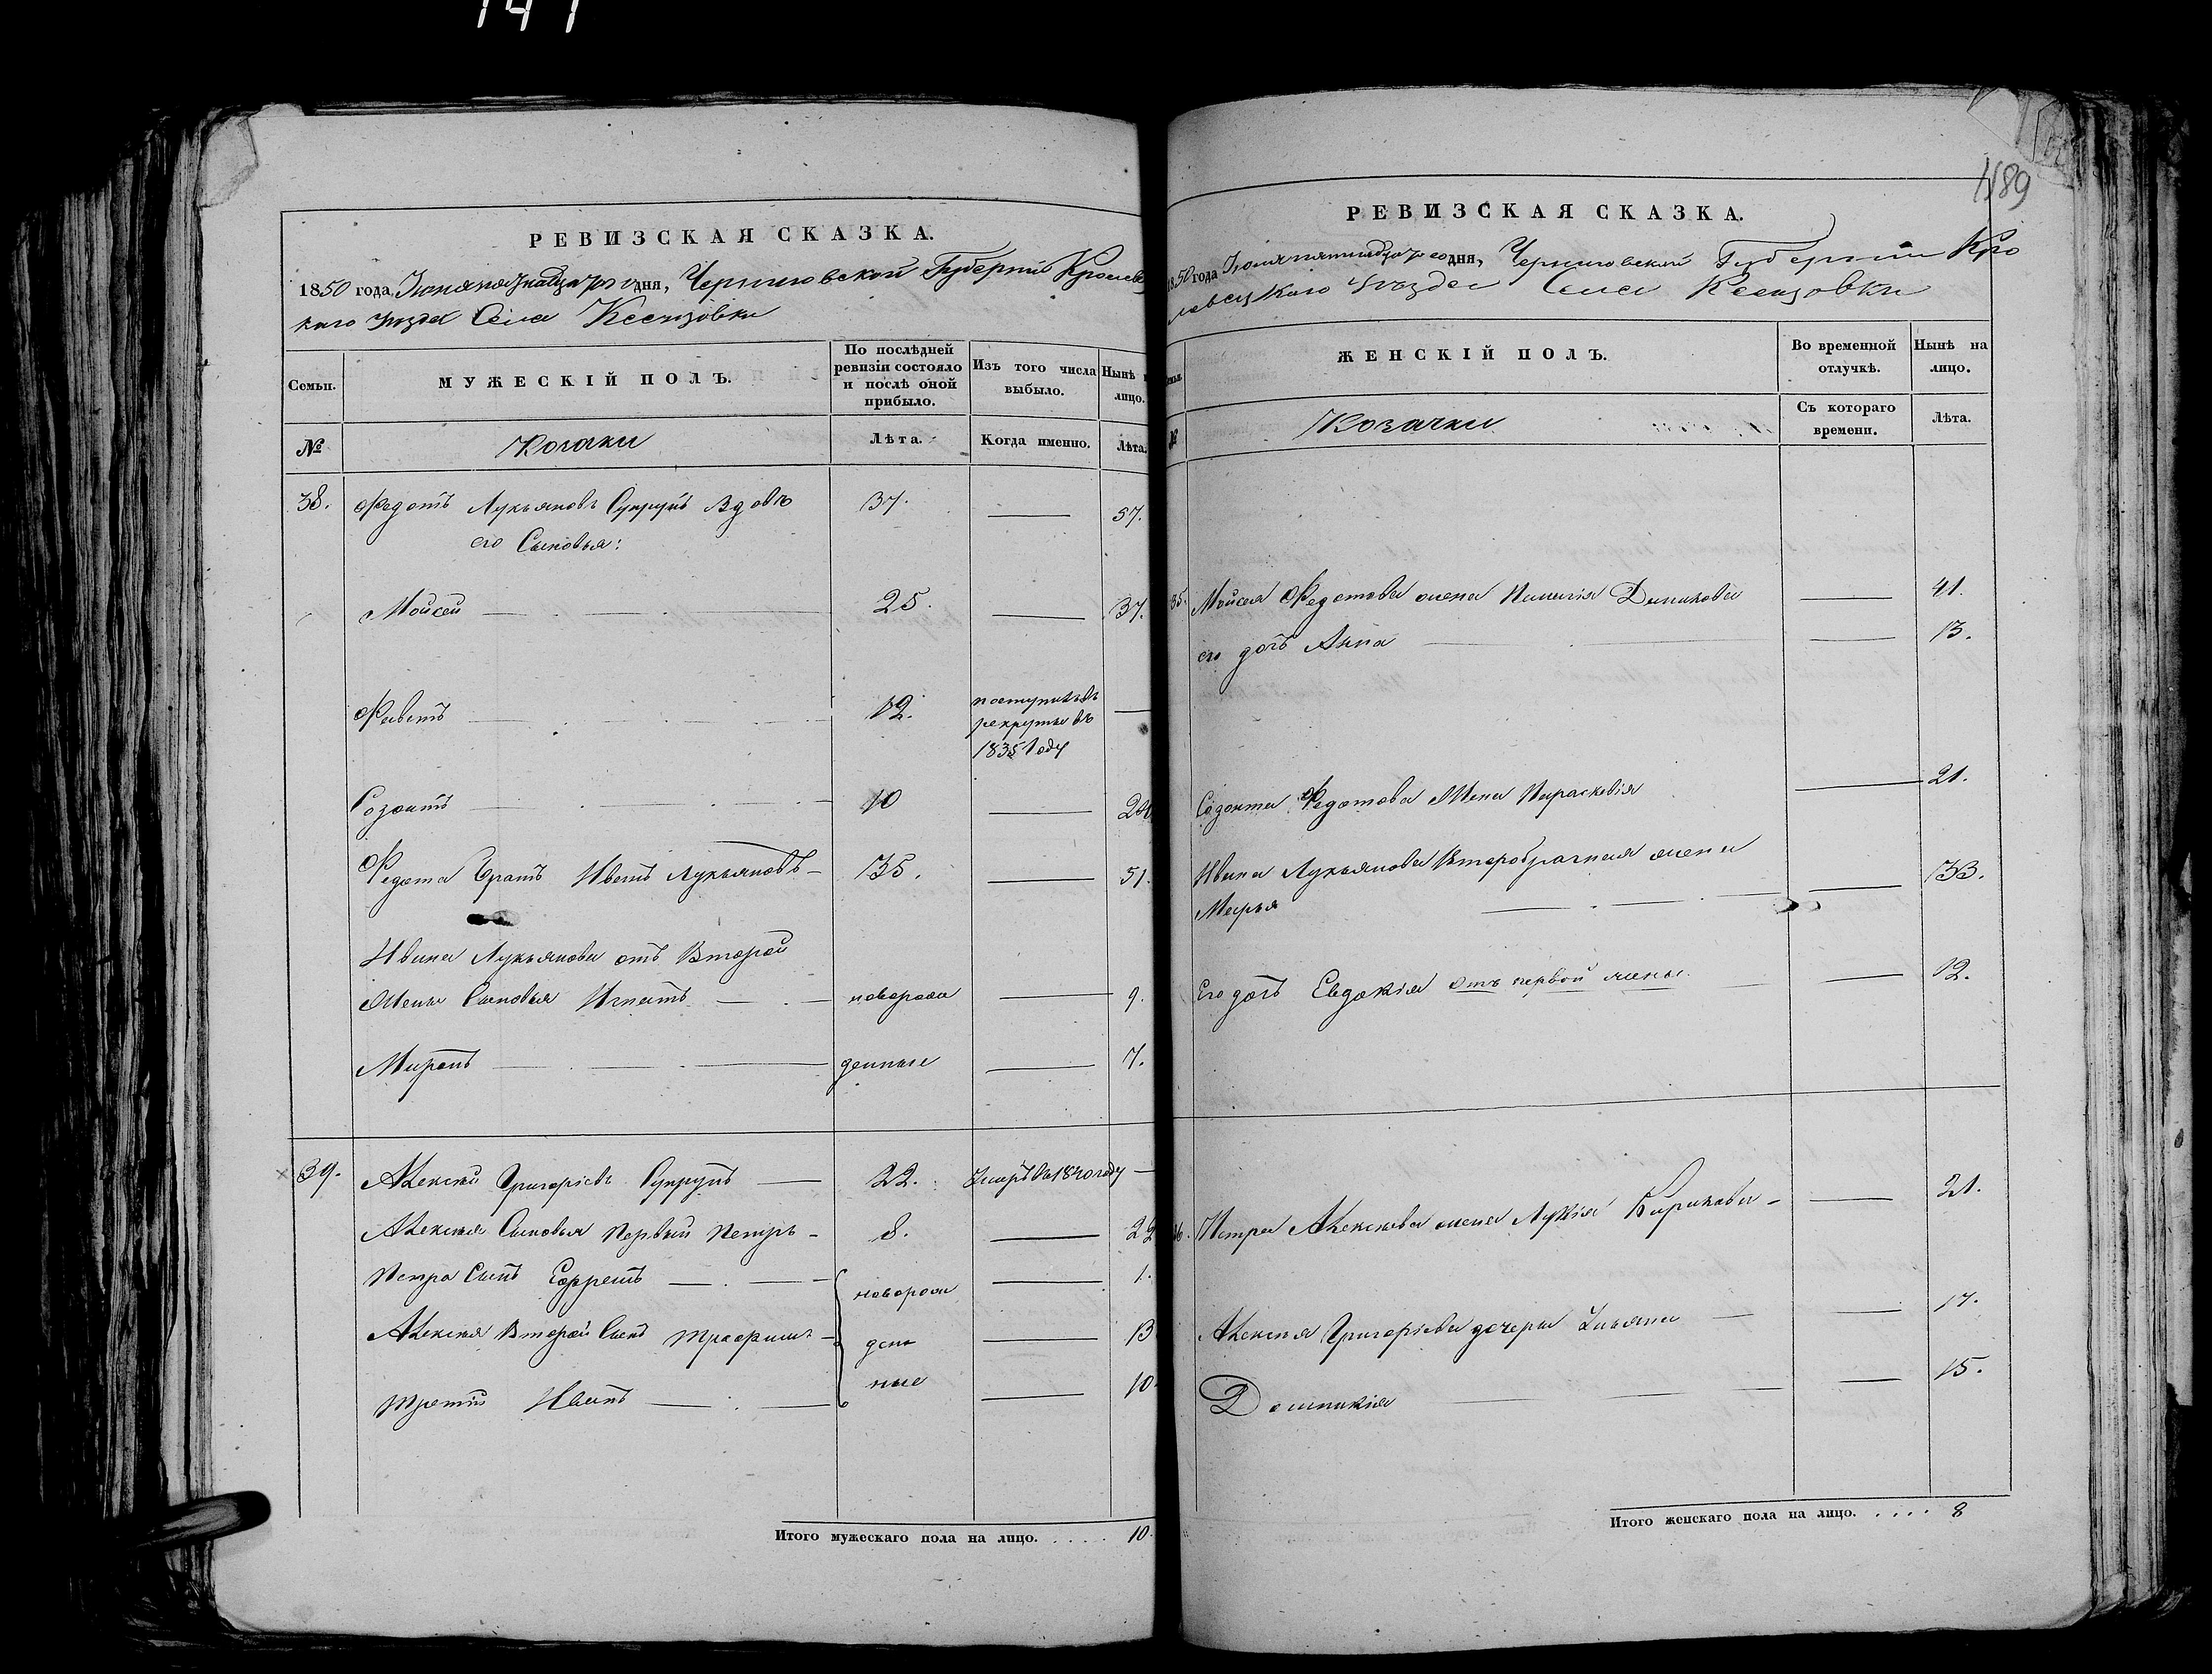 141
РЕВИЗСКАЯ СКАЗКА.
1850 года дня, Черниговской Губерніи Кролевец
каго Уезда Села
Семьи. МУЖЕСКІЙ ПОЛЪ. По послѣдней ревизіи состояло и послѣ оной прибыло. Изъ того числа выбыло. Нынѣ лицо.
№ Козаки Лѣта. Когда именно. Лѣта.
38. Федотъ Лукьяновъ Супрунъ Вдовъ 37. — 57.
его Сыновья:
Мойсей — 25. — 37.
12. поступилъ въ
рекруты въ
1835 Году —
Созонтъ — 10 —
Федота братъ Иванъ Лукьяновъ — 35. — 51.
Ивана Лукьянова отъ Второй
Жены Сыновья Игнатъ — новорож — 9.
Миронъ — денные — 7.
39. Алексѣй Григорьевъ Супрунъ — 22. Умеръ въ 1840 году —
Алексѣя Сыновья Первый Петръ — 8. — 22
Петра Сынъ — новорож — 1.
Алексѣя Второй Сынъ Трофимъ — ден — 13
Третій Иванъ — ные — 10
Итого мужескаго пола на лицо. . . . . 10.
1189
РЕВИЗСКАЯ СКАЗКА.
1850 года дня, Черниговской Губерніи Кро
левецкаго Уѣзда Села
ЖЕНСКІЙ ПОЛЪ. Во временной отлучкѣ. Нынѣ на лицо.
№ Козачки Съ котораго времени. Лѣта.
Мойсея Федотова жена — 41.
его дочь Анна — 13.
Созонта Федотова Жена Параскевія — 21.
Ивана Лукьянова Второбрачная жена
Марья — 33.
Его дочь Евдокія отъ первой жены — 12.
Петра Алексѣева жена Кирикова — 21.
Алексѣя Григорьева дочери Ульяна — 17.
Домникія — 15.
Итого женскаго пола на лицо. . . . . 8